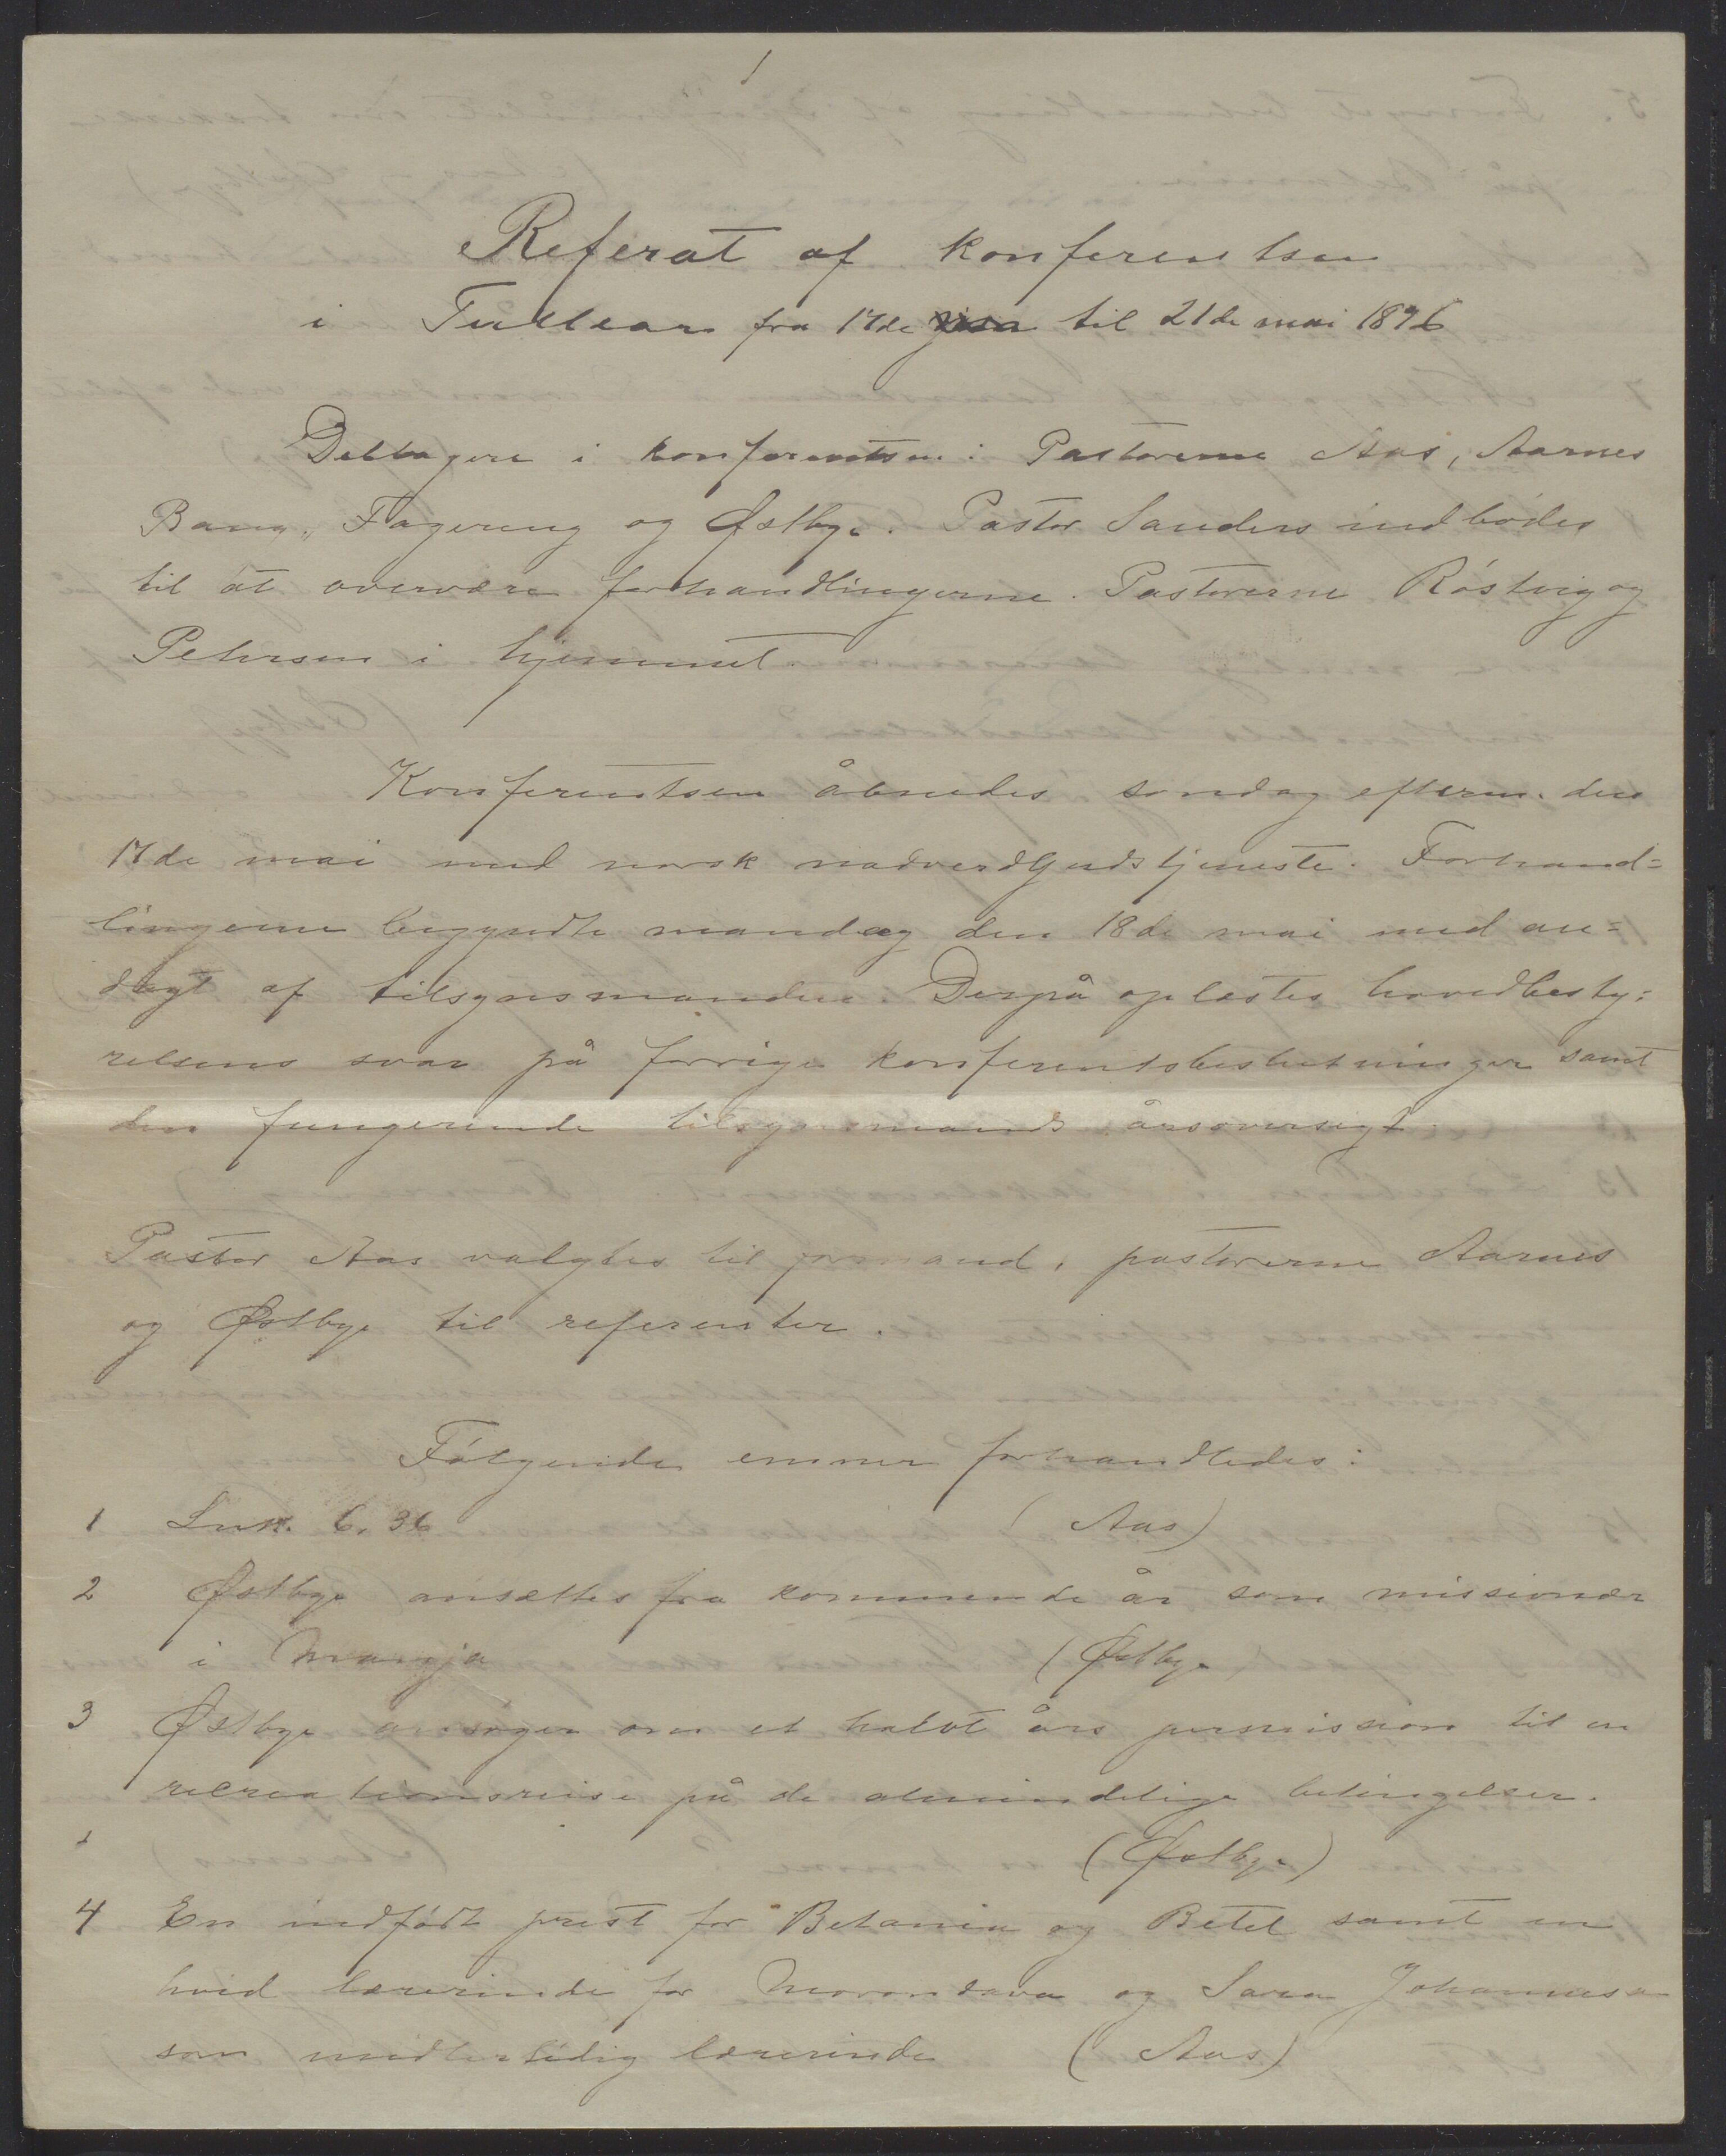 1
Referat af konferentsen
i Tullear fra 17de til 21de mai 1896
Deltagere i konferentsen: Pastorerne Aas, Aarnes
Bang, Fagereng og Østbye. Pastor Sanders indbødes
til at overvære forhandlingerne. Pastorerne Røstvig og
Petersen i hjemmet.
Konferentsen åbnedes søndag efterm. den
17de mai med norsk nadverdgudstjeneste. Forhand=
lingerne begyndte mandag den 18de mai med an=
dagt af tilsynsmanden. Derpå oplæstes hovedbesty=
relsens svar på forrige konferentsbeslutninger samt
den fungerende tilsynsmands årsoversigt.
Pastor Aas valgtes til formand, pastorerne Aarnes
og Østbye til referenter.
Følgende emner forhandledes:
1 Luk. 6, 36 (Aas)
2 Østbye ansættes fra kommende år som missionær
i Manja (Østbye
3 Østbye ansøger om et halvt års permission til en
recreationsreise på de almindelige betingelser.
(Østbye)
4 En indfødt prest for Betania og Betel samt en
hvid lærerinde for Morondava og Sara Johannesa
som midlertidig lærerinde (Aas)